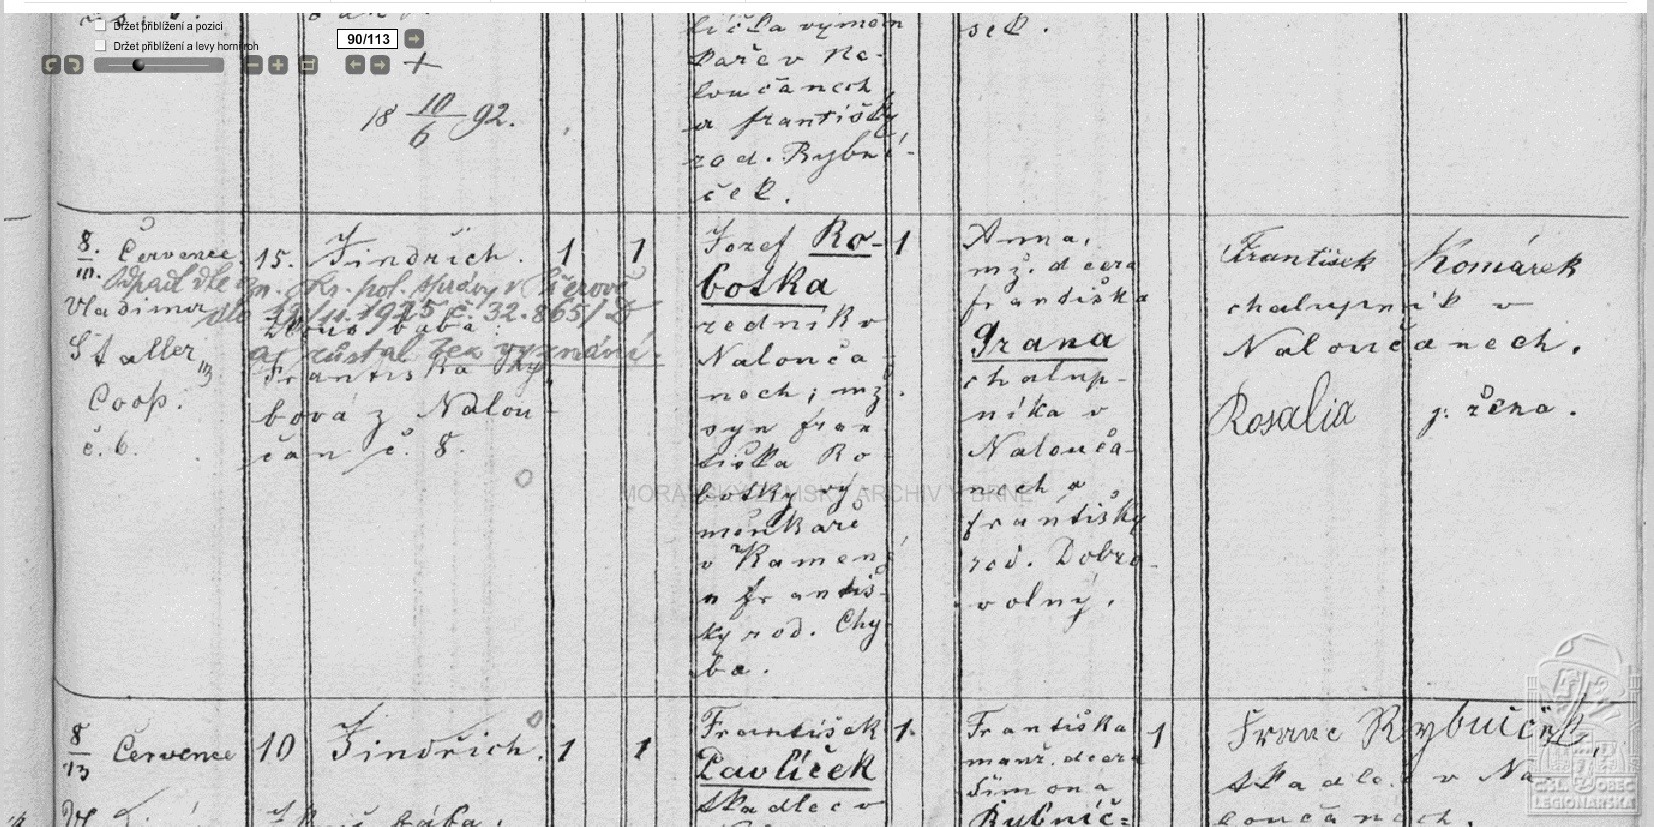 Držet přiblížení a pozici
Držet přiblížení a levy horní roh
90/113
+
18 10/6 92.
líčka výměn
kaře v Na-
loučanech
a františky
rod. Rybní-
ček.
sek.
8./10. Červenec.
Vladimír
Staller
Coop.
č. 6.
15.
Jindřich.
1
1
Odpadl dle zn. okr. pol. správy v
dto 19/11 1925 č. 32.865/
a zůstal bez vyznání.
bába:
Františka Ry-
bová z Nalou-
čan č. 8.
Jozef Ro-
botka
v
Nalouča-
nech, mž.
syn fran
tiška Ro-
botky vý
měnkaře
v Kamen
a františ-
ky rod. Chy-
ba.
1
Anna,
mž. dcera
františka
Grana
chalup-
níka v
Nalouča-
nech a
františky
rod. Dobro-
volný.
František Komárek
chalupník v
Naloučanech.
Rosalia j. žena.
MORAVSKÝ ZEMSKÝ ARCHIV V BRNĚ
8/13 Červenec
10
Jindřich.
1
1
bába.
František
Pavlíček
tkadlec v
1.
Františka
manž. dcera
Šimona
Rybníč-
1
Franc Rybníček,
tkadlec v Na-
loučanech.
ČSL. OBEC
LEGIONÁŘSKÁ